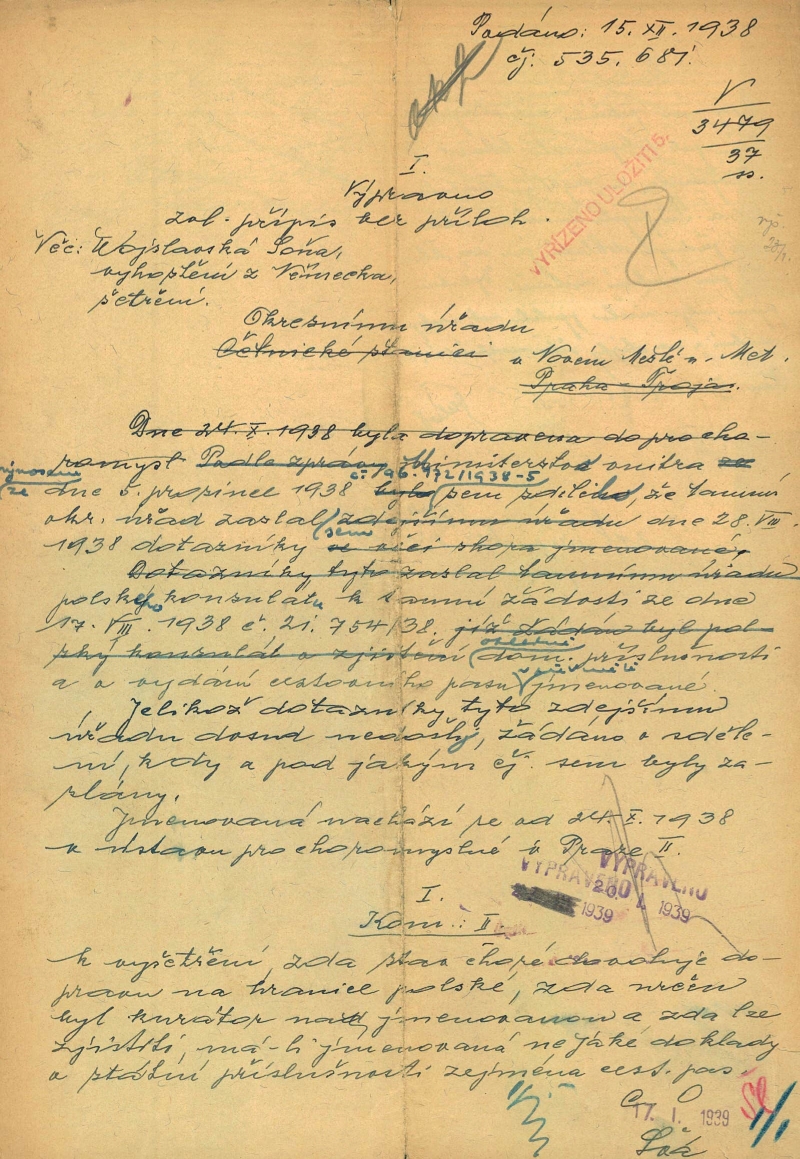 Podáno: 15. XII. 1938
čj. 535.681.
V
3479
37
I.
Výpravno
zvl. přípis bez příloh.
VYŘÍZENO ULOŽITI 5.
Věc: Wojslavská Soňa,
vyhoštění z Německa,
šetření.
Okresnímu úřadu
Četnické stanici v Novém Městě n. Met.
Praha-Troja.
Dne 24. X. 1938 byla dopravena do procha-
romysl Podle zprávy Ministerstvo vnitra ze
výnosem č. 96.972/1938-5
ze dne 5. prosince 1938 bylo sem sdělilo, že tamní
okr. úřad zaslal zdejšímu úřadu dne 28. VIII.
sem
1938 dotazníky ve věci shora jmenované,
Dotazníky tyto zaslal tamnímu úřadu
polského konsulátu k tamní žádosti ze dne
17. VIII. 1938 č. 21.754/38, již žádán byl pol-
ský konsulát o zjištění dom. příslušnosti
a o vydání cestovního pasu jmenované.
Jelikož dotazníky tyto zdejšímu
úřadu dosud nedošly, žádáno o sděle-
ní, kdy a pod jakým čj. sem byly za-
slány.
Jmenovaná nachází se od 24. X. 1938
v ústavu pro choromyslné v Praze II.
VYPRAVENO
VYPRAVENO
20. I. 1939
1939
I.
Kom. : II
k vyšetření, zda stav choré dovoluje do-
pravu na hranice polské, zda určen
byl kurátor nad jmenovanou a zda lze
zjistiti, má-li jmenovaná nějaké doklady
o státní příslušnosti zejména cest. pas.
17. I. 1939